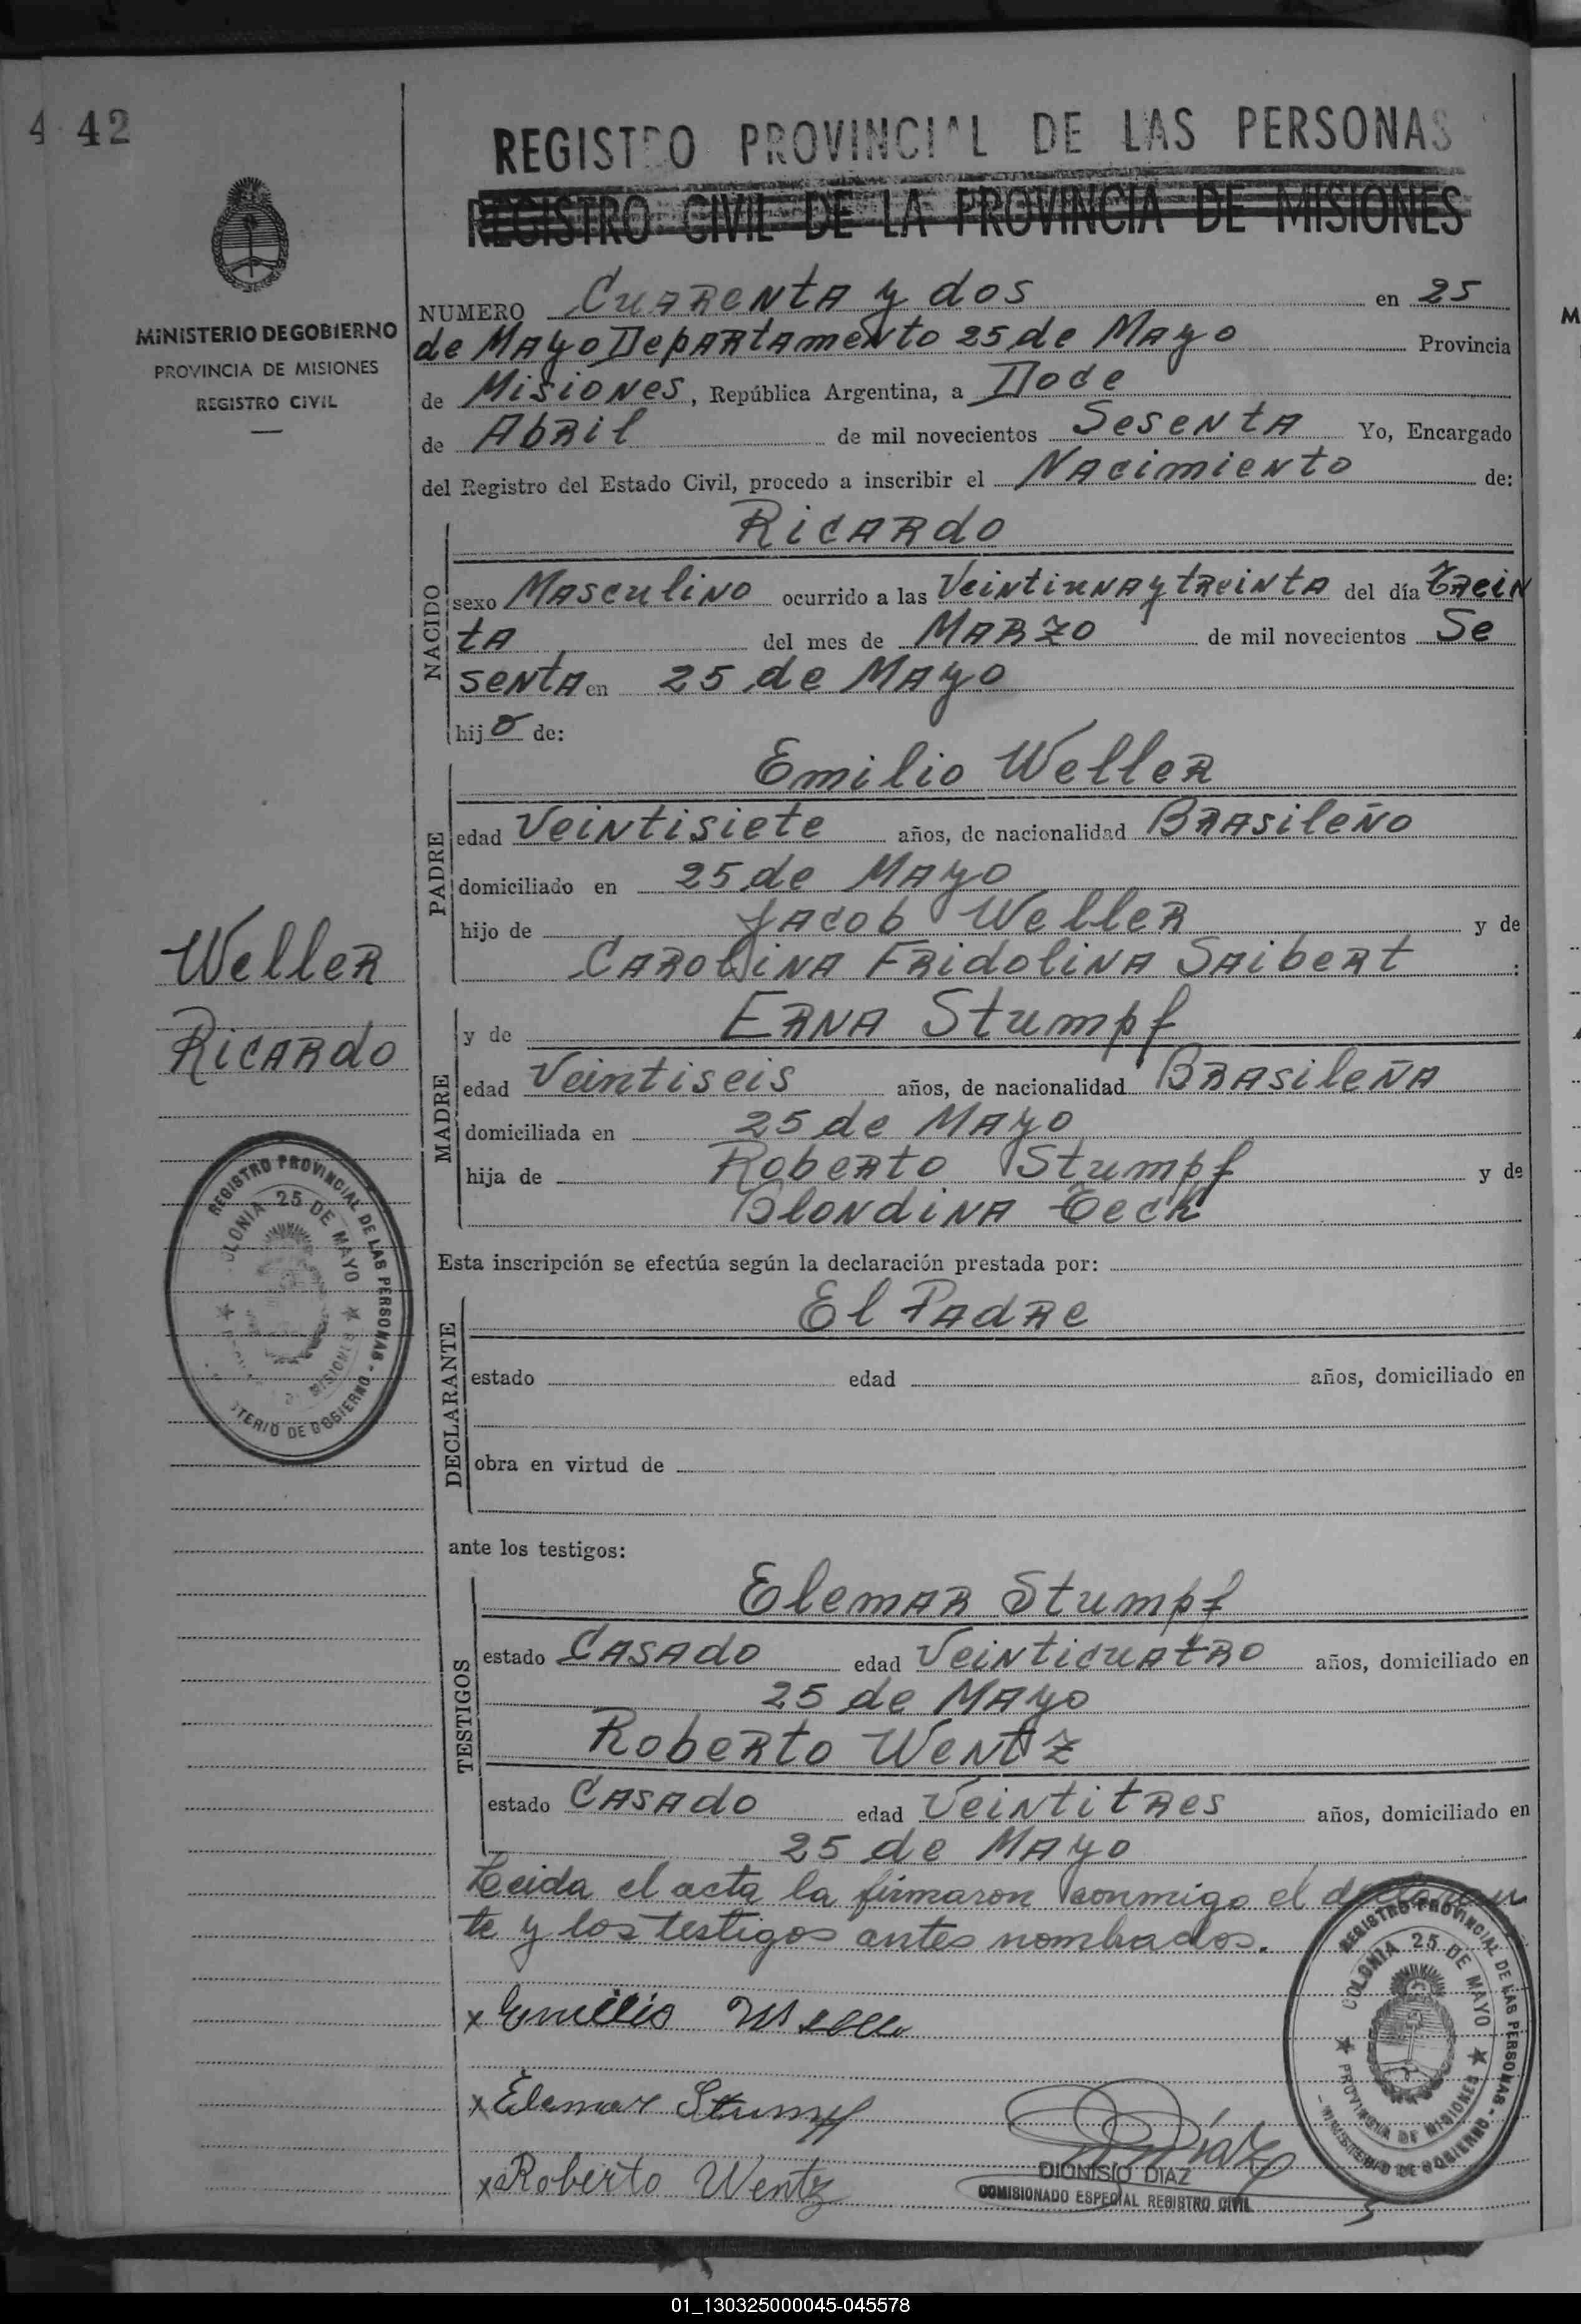 4 42
REGISTRO PROVINCIAL DE LAS PERSONAS
REGISTRO CIVIL DE LA PROVINCIA DE MISIONES
MINISTERIO DE GOBIERNO
PROVINCIA DE MISIONES
REGISTRO CIVIL
NUMERO Cuarenta y dos en 25
de Mayo Departamento 25 de Mayo Provincia
de Misiones, República Argentina, a Doce
de Abril de mil novecientos Sesenta Yo, Encargado
del Registro del Estado Civil, procedo a inscribir el Nacimiento de:
NACIDO
Ricardo
sexo Masculino ocurrido a las Veintiuna y treinta del día trein
ta del mes de Marzo de mil novecientos Se
senta en 25 de Mayo
hijo de:
PADRE
Emilio Weller
edad Veintisiete años, de nacionalidad Brasileño
domiciliado en 25 de Mayo
hijo de Jacob Weller y de
Carolina Fridolina Saibert :
Weller
Ricardo
MADRE
y de Erna Stumpf
edad Veintiseis años, de nacionalidad Brasileña
domiciliada en 25 de Mayo
hija de Roberto Stumpf y de
Blondina
REGISTRO PROVINCIAL DE LAS PERSONAS - TERIO DE GOBIERNO
OLONIA 25 DE MAYO
MISIONES
Esta inscripción se efectúa según la declaración prestada por:
DECLARANTE
El Padre
estado edad años, domiciliado en
obra en virtud de
ante los testigos:
TESTIGOS
Elemar Stumpf
estado Casado edad Veinticuatro años, domiciliado en
25 de Mayo
Roberto Wentz
estado Casado edad Veintitres años, domiciliado en
25 de Mayo
Leida el acta la firmaron conmigo el declaran
te y los testigos antes nombrados.
x Emilio Weller
x Elemar Stumpf
x Roberto Wentz
Díaz
DIONISIO DIAZ
COMISIONADO ESPECIAL REGISTRO CIVIL
REGISTRO PROVINCIAL DE LAS PERSONAS - MINISTERIO DE GOBIERNO -
COLONIA 25 DE MAYO
PROVINCIA DE MISIONES
M
01_130325000045-045578